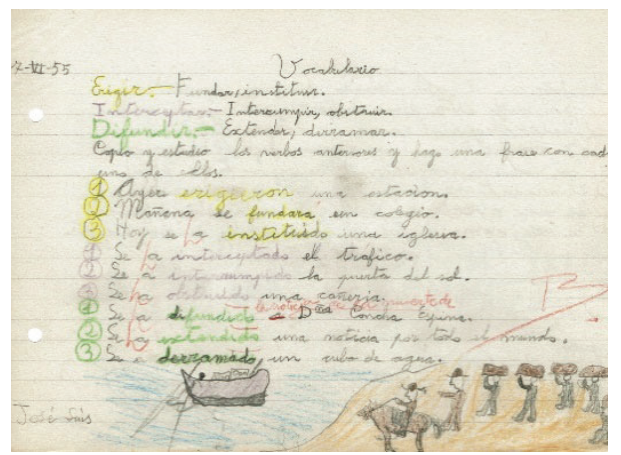 7-VI-55
Vocabulario
Erigir.- Fundar, instituir.
Interceptar.- Interrumpir, obstruir.
Difundir.- Extender, dirramar.
Copio y estudio los verbos anteriores y hago una frase con cad
uno de ellos.
1 Ayer erigieron una estacion.
2 Mañana se fundara un colegio.
3 Hoy se ha instituido una iglesia.
1 Se ha interceptado el trafico.
2 Se ha interrumpido la puerta del sol.
3 Se ha obstruido una cañeria.
la noticia de la muerte de
1 Se ha difundido a Dña Concha Espina.
2 Se ha extendido una noticia por todo el mundo.
3 Se a derramado, un cubo de agua.
B
José Luis